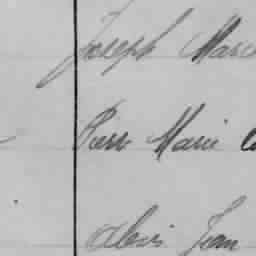 Joseph Marc
Pierre Marie
Alexis Jean